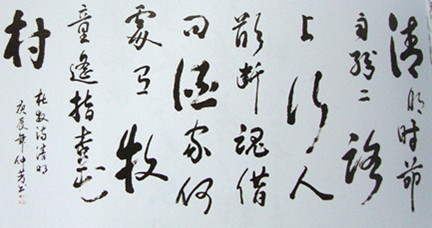 清明时節
雨纷二路
上行人
欲断魂借
问酒家何
處有牧
童遥指杏花
村
杜牧诗清明
庚辰年仲芳书